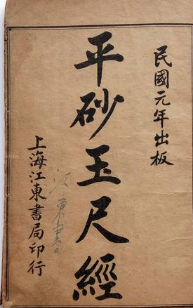 民國元年出板
平砂玉尺經
上海江東書局印行